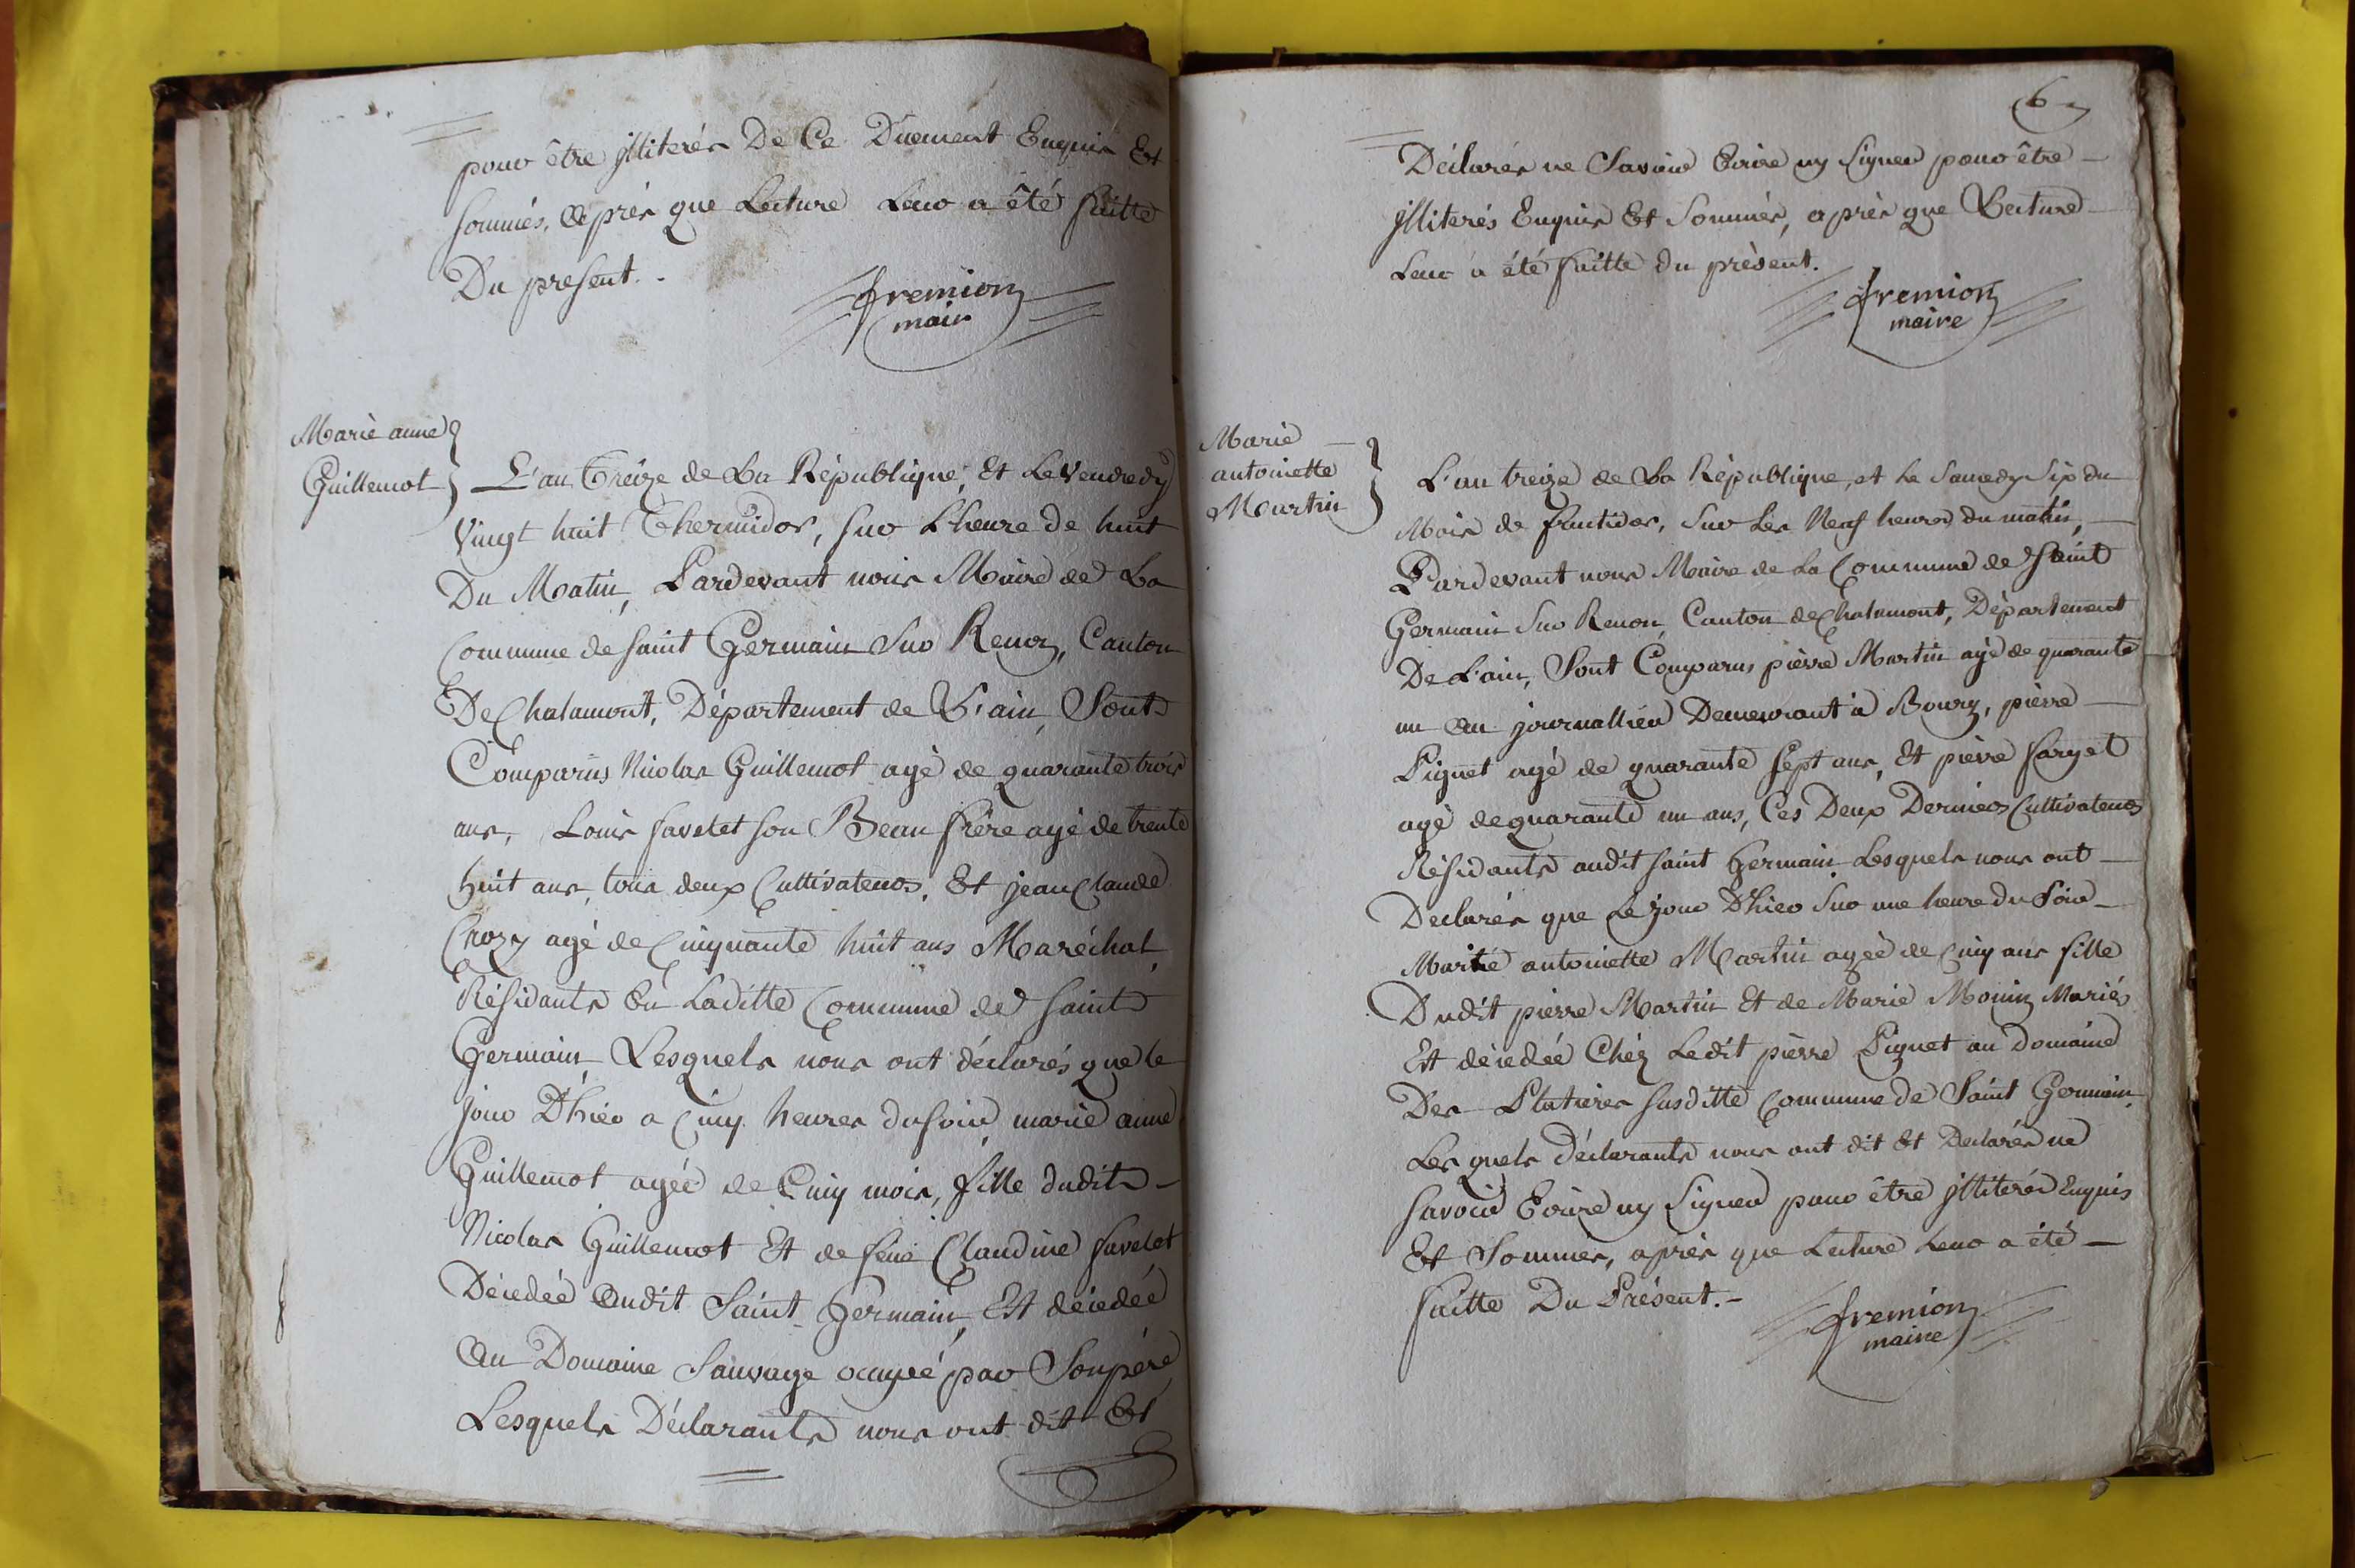 pour être jlliterés De Ce Duement Enquis Et
sommés, après que Lecture Leur a été faitte
Du present.
fremion
maire
Marie anne
Guillemot
L'an treize de La République, Et Le Vendredy
Vingt huit Thermidor, sur L'heure de huit
Du Matin, Pardevant nous Maire de La
Commune de saint Germain sur Renon, Canton
De Chalamont, Département de L'ain, Sont
Comparus Nicolas Guillemot agé de quarante trois
ans, Louis favelet son Beau frère agé de trente
huit ans, tous deux Cultivateurs, Et jean Claude
Crozy agé de Cinquante huit ans Maréchal
Résidants En Laditte Commune de saint
Germain, Lesquels nous ont déclarés que le
jour D'hier a Cinq heures du soir marie anne
Guillemot agée de Cinq mois, fille dudit
Nicolas Guillemot Et de feüe Claudine favelet
Décedée Audit Saint Germain, Est décedée
Au Domaine Sauvage ocupé par Son père
Lesquels Déclarants nous ont dit Et
6
Déclarés ne Savoir Ecrire ny Signer pour être
jlliterés Enquis Et Sommés, après que Lecture
Leur a été faitte du present.
fremion
maire
Marie
antoinette
Martin
L'an treize de La République, et le Samedy Six du
Mois de fructidor, Sur Les Neuf heures du matin,
Pardevant nous Maire de La Commune de Saint
Germain Sur Renon, Canton de Chalamont, Département
De L'ain, Sont Comparus pièrre Martin agé de quarante
un An journallier Demeurant à Bourg, pièrre
Pignet agé de quarante sept ans, Et pièrre farget
agé de quarante un ans, Ces Deux Derniers Cultivateurs
Résidants audit saint Germain, Lesquels nous ont
Declarés que Le jour D'hier sur une heure du Soir
Marie antoinette Martin agée de Cinq ans fille
Dudit pierre Martin Et de Marie Monin Mariés
Est décedée Chéz Ledit pièrre Pignet au Domaine
Des Platieres susditte Commune de Saint Germain,
Les quels Déclarants nous ont dit Et Declarés ne
savoir Ecrire ny Signer pour être jlliterés Enquis
Et Sommés, après que Lecture Leur a été
faitte Du Présent.
fremion
maire